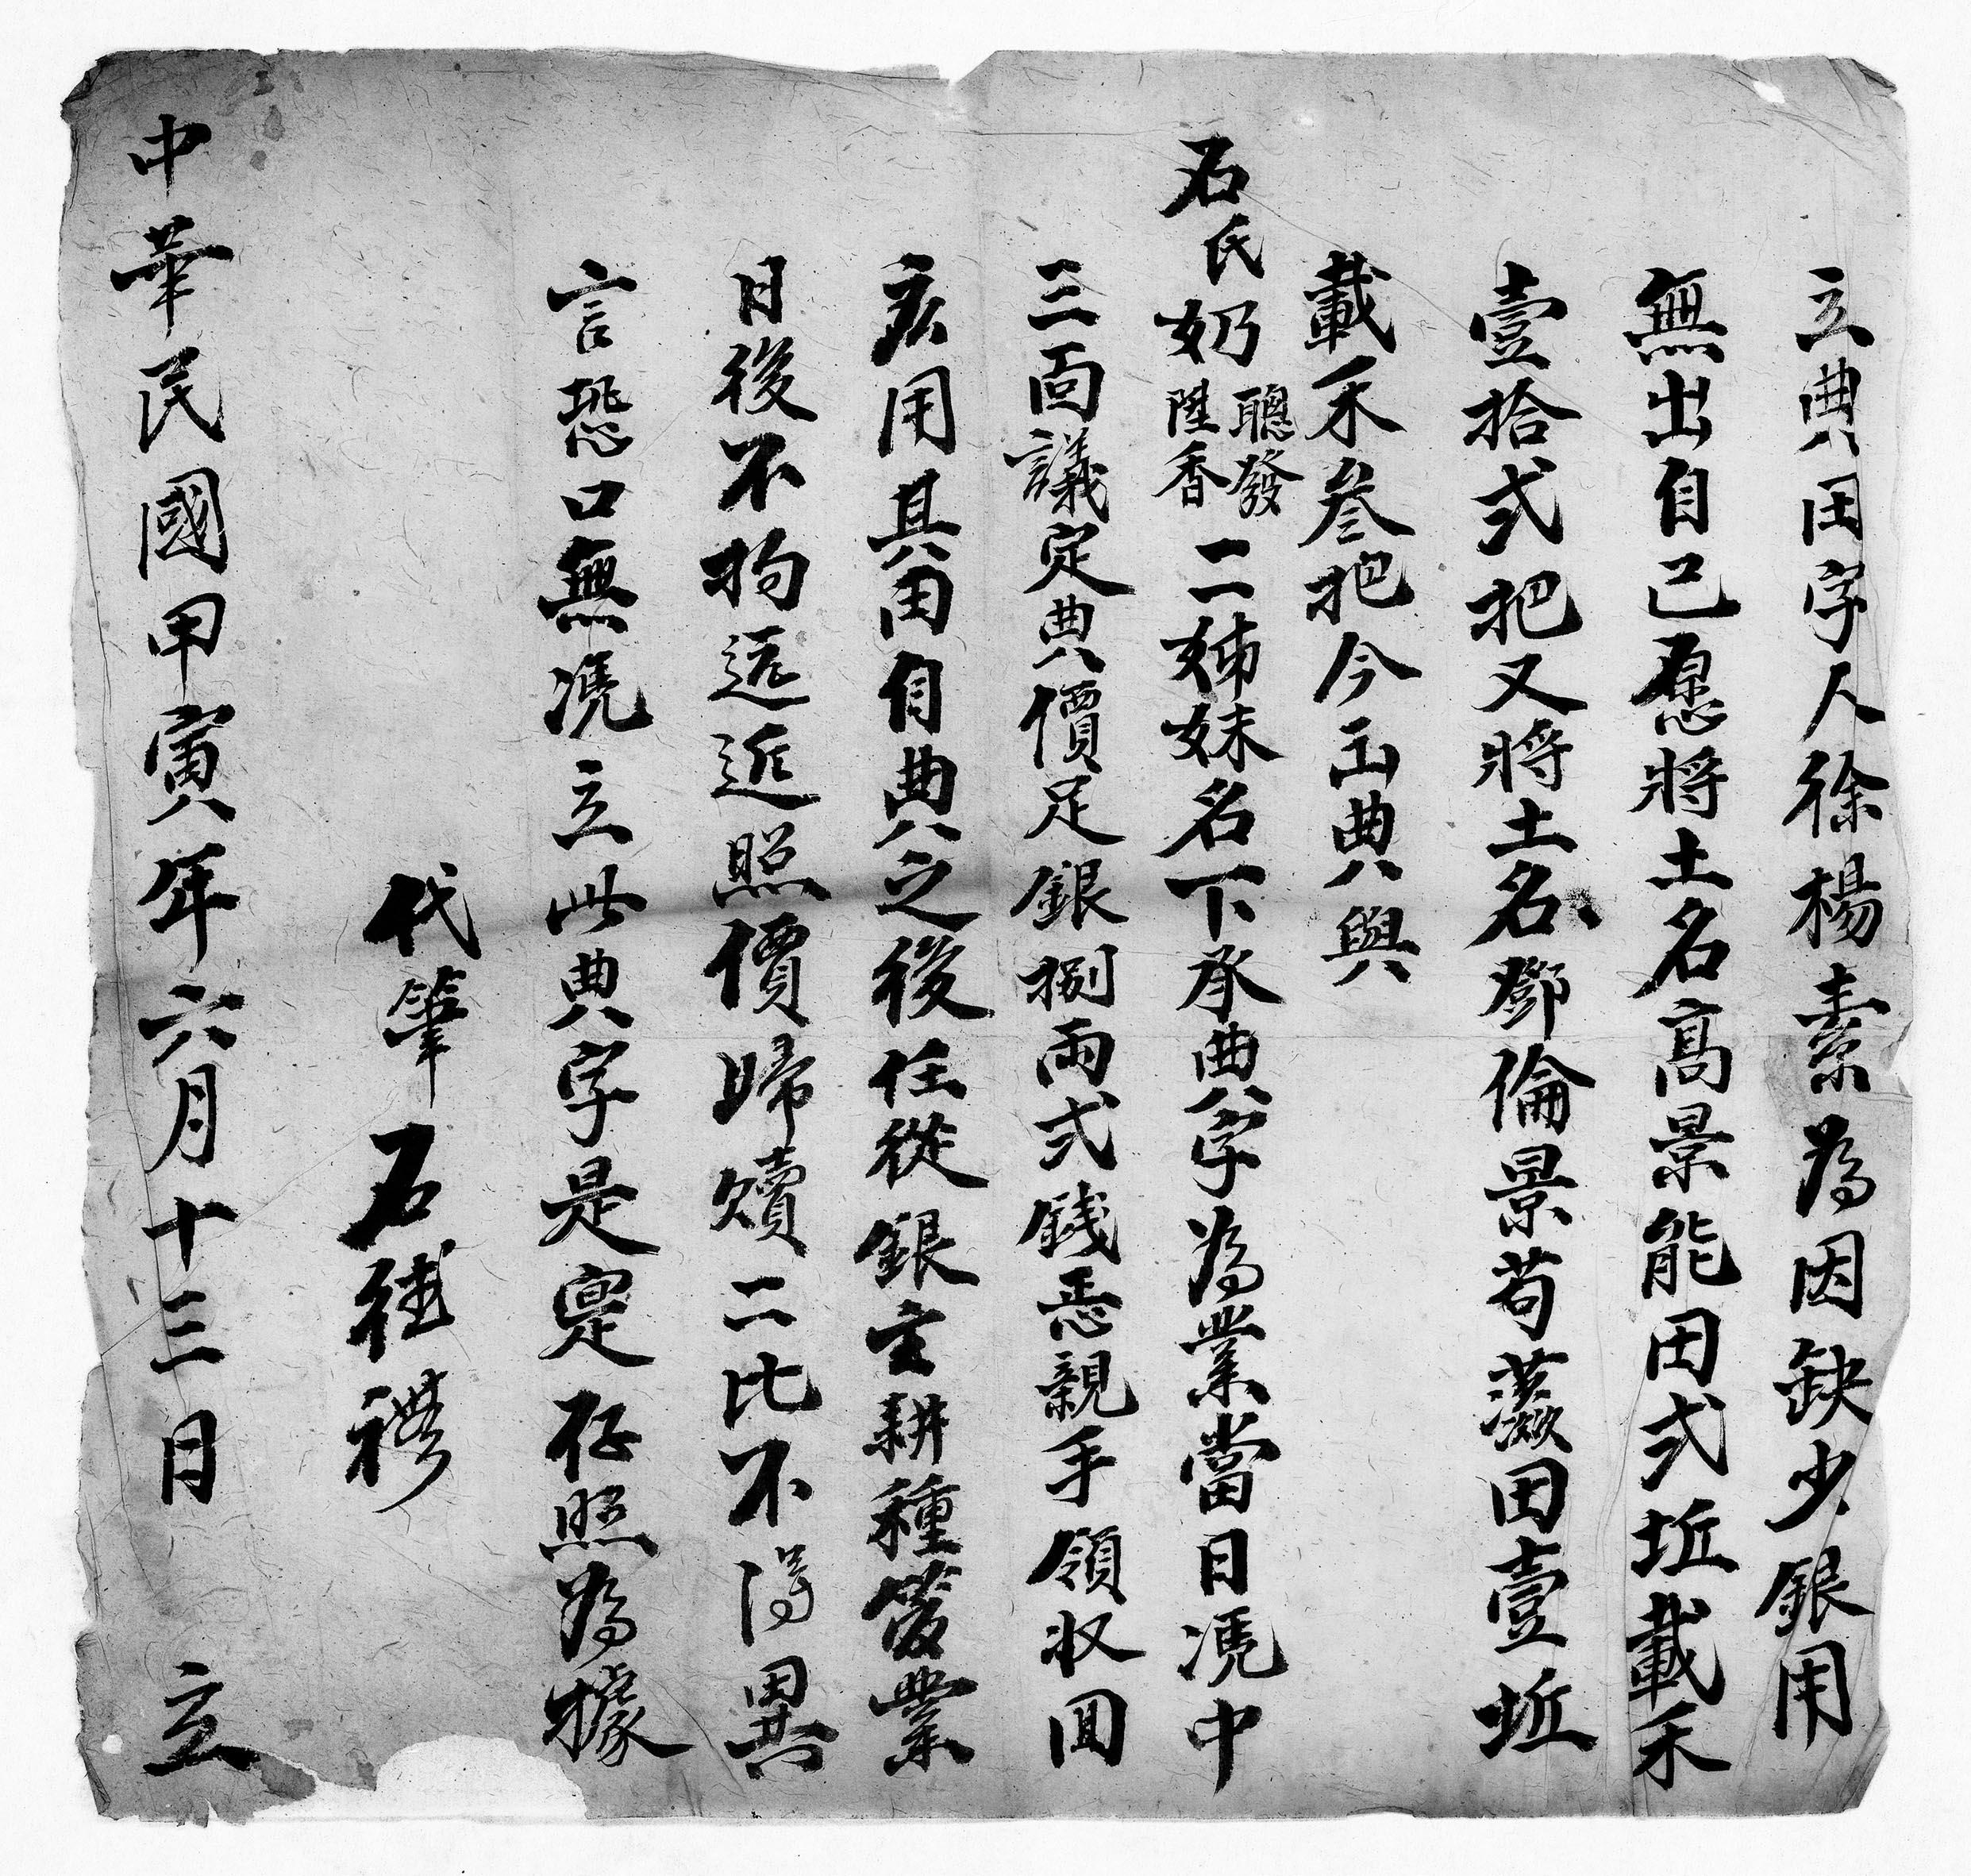 立典田字人徐楊素為因缺少銀用
無出自己愿將土名高景能田弍坵載禾
壹拾弍把又將土名鄧倫景茍田壹坵
載禾叄把今出典與
石氏奶聰發陞香二姊妹名下承典字為業當日凴中
三面議定典價足銀捌兩弍錢恁親手領収回
應用其田自典之後任從銀主耕種管業
日後不拘遠近照價歸贖二比不得異
言恐口無凴立此典字是寔存照為據
代筆石
中華民國甲寅年六月十三日立